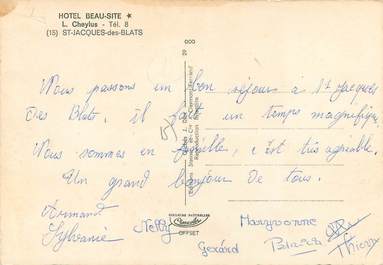 HOTEL BEAU-SITE ★
L. Chaylus - Tél. 8
(15) ST-JACQUES-des-BLATS
29 003
Nous passons un bon séjour à St Jacques
des Blats, il fait un temps magnifique
Nous sommes en famille, c'est très agréable.
Un grand bonjour de tous.
Armand
Sylvanie
Nelly
Maryvonne
Gérard
Patrick
Thierry
COULEURS NATURELLES
OFFSET